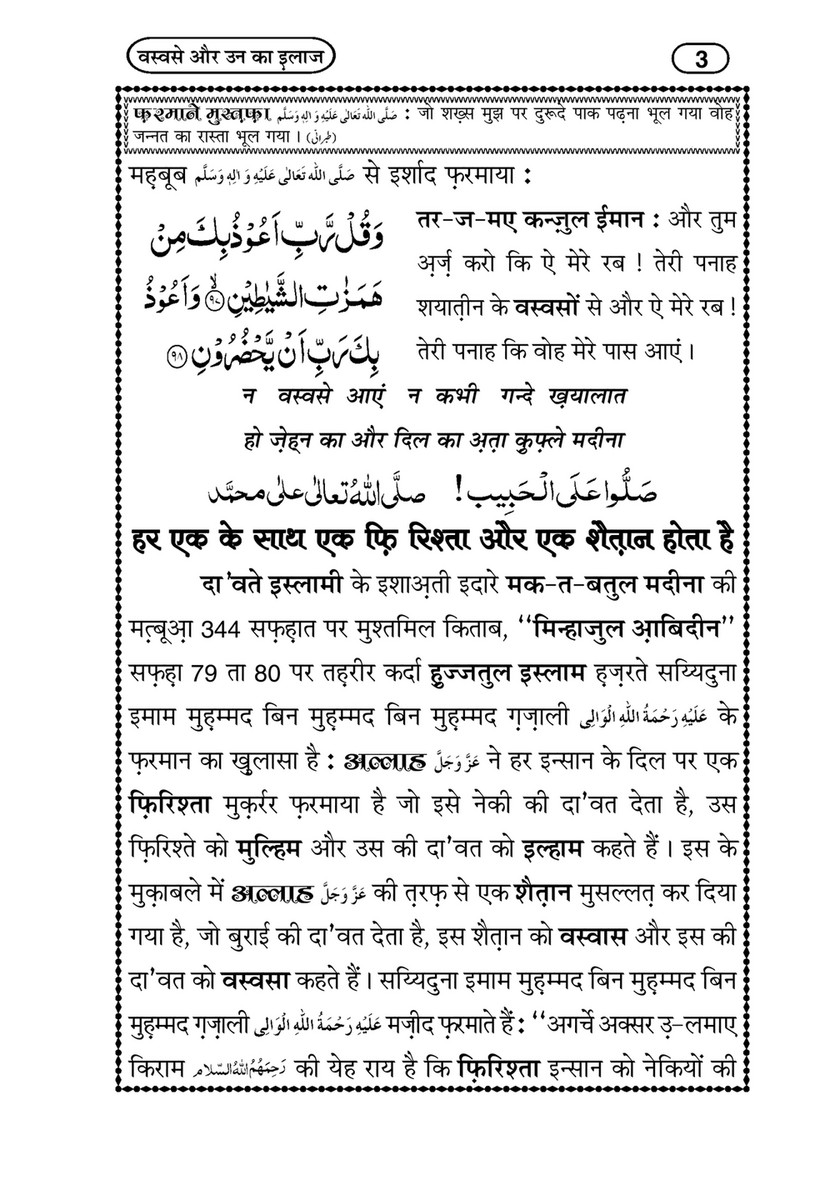 वस्वसे और उन का इलाज
3
फ़रमाने मुस्तफ़ा صَلَّى اللّٰہُ تَعَالٰى عَلَیْہِ وَ اٰلِہٖ وَسَلَّم : जो शख़्स मुझ पर दुरूदे पाक पढ़ना भूल गया वोह
जन्नत का रास्ता भूल गया । (طبرانی)
महबूब صَلَّى اللّٰہُ تَعَالٰى عَلَیْہِ وَ اٰلِہٖ وَسَلَّم से इर्शाद फ़रमाया :
وَقُلْ رَّبِّ اَعُوْذُ بِكَ مِنْ
هَمَزٰتِ الشَّیٰطِیْنِۙ(۹۷) وَ اَعُوْذُ
بِكَ رَبِّ اَنْ یَّحْضُرُوْنِ(۹۸)
तर-ज-मए कन्ज़ुल ईमान : और तुम
अ़र्ज़ करो कि ऐ मेरे रब ! तेरी पनाह
शयात़ीन के वस्वसों से और ऐ मेरे रब !
तेरी पनाह कि वोह मेरे पास आएं ।
न वस्वसे आएं न कभी गन्दे ख़यालात
हो ज़ेह्न का और दिल का अ़त़ा क़ुफ़्ले मदीना
صَلُّوا عَلَى الْحَبِیب! صلَّى اللّٰہُ تعالٰى علٰى محمَّد
हर एक के साथ एक फ़िरिश्ता और एक शैत़ान होता है
दा'वते इस्लामी के इशाअ़ती इदारे मक-त-बतुल मदीना की
मत़्बूआ़ 344 सफ़्ह़ात पर मुश्तमिल किताब, ‘‘मिन्हाजुल आ़बिदीन’’
सफ़ह़ा 79 ता 80 पर तह़रीर कर्दा हुज्जतुल इस्लाम ह़ज़रते सय्यिदुना
इमाम मुह़म्मद बिन मुह़म्मद बिन मुह़म्मद ग़ज़ाली عَلَیْہِ رَحْمَۃُ اللّٰہِ الْوَالِی के
फ़रमान का ख़ुलासा है : अल्लाह عَزَّوَجَلَّ ने हर इन्सान के दिल पर एक
फ़िरिश्ता मुक़र्रर फ़रमाया है जो इसे नेकी की दा'वत देता है, उस
फ़िरिश्ते को मुल्हिम और उस की दा'वत को इल्हाम कहते हैं । इस के
मुक़ाबले में अल्लाह عَزَّوَجَلَّ की त़रफ़ से एक शैत़ान मुसल्लत़ कर दिया
गया है, जो बुराई की दा'वत देता है, इस शैत़ान को वस्वास और इस की
दा'वत को वस्वसा कहते हैं । सय्यिदुना इमाम मुह़म्मद बिन मुह़म्मद बिन
मुह़म्मद ग़ज़ाली عَلَیْہِ رَحْمَۃُ اللّٰہِ الْوَالِی मज़ीद फ़रमाते हैं : ‘‘अगर्चे अक्सर उ़-लमाए
किराम رَحِمَہُمُ اللّٰہُ السَّلَام की येह राय है कि फ़िरिश्ता इन्सान को नेकियों की